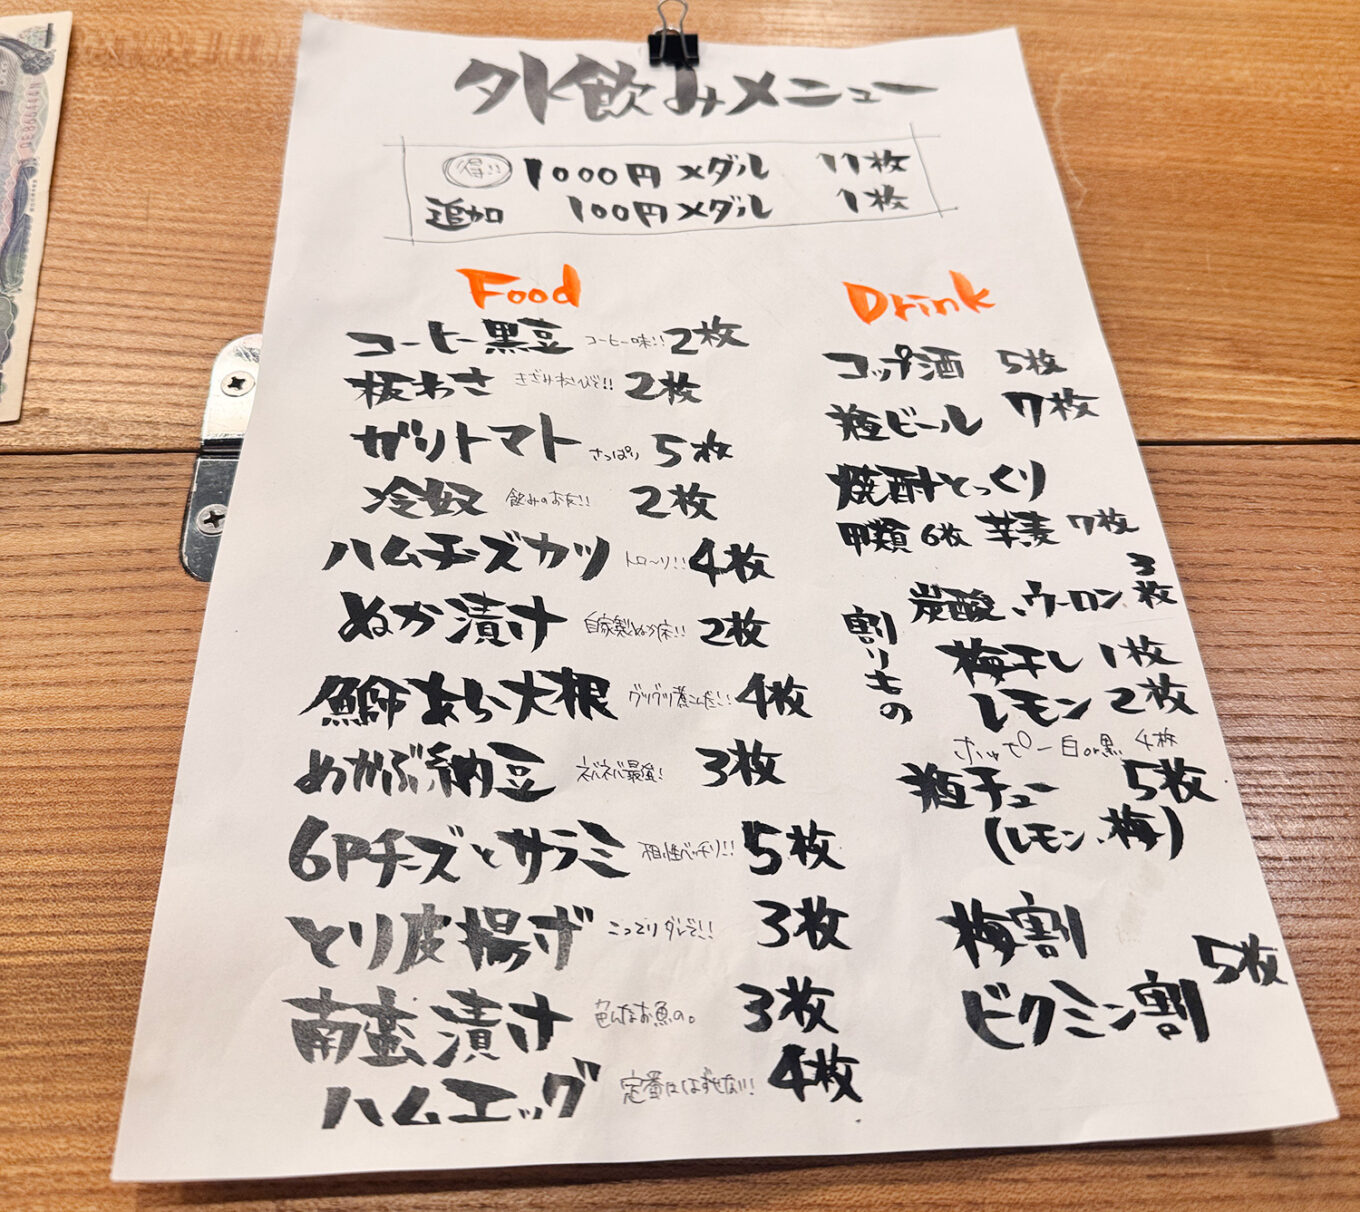 外飲みメニュー
得!! 1000円メダル 11枚
追加 100円メダル 1枚
Food
コーヒー黒豆 コーヒー味!! 2枚
板わさ きざみわさびで!! 2枚
ガリトマト さっぱり 5枚
冷奴 飲みのお友!! 2枚
ハムチーズカツ トロ〜リ!! 4枚
ぬか漬け 自家製ぬか床!! 2枚
鰤あら大根 グツグツ煮こんだ!! 4枚
めかぶ納豆 ネバネバ最強! 3枚
6Pチーズとサラミ 相性バッチリ!! 5枚
とり皮揚げ こってりダレで!! 3枚
南蛮漬け 色んなお魚の。 3枚
ハムエッグ 定番はハズせない! 4枚
Drink
コップ酒 5枚
瓶ビール 7枚
焼酎とっくり
甲類 6枚 芋麦 7枚
割りもの
炭酸、ウーロン 3枚
梅干し 1枚
レモン 2枚
ホッピー 白or黒 4枚
瓶チュー 5枚
(レモン、梅)
梅割
ビタミン割 5枚